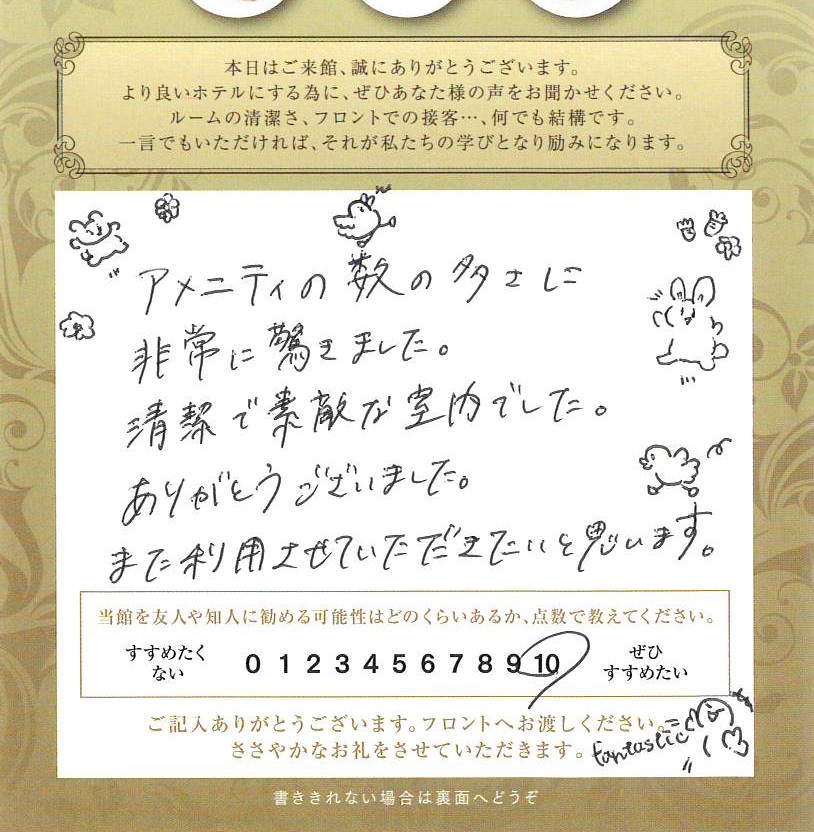 本日はご来館、誠にありがとうございます。
より良いホテルにする為に、ぜひあなた様の声をお聞かせください。
ルームの清潔さ、フロントでの接客…、何でも結構です。
一言でもいただければ、それが私たちの学びとなり励みになります。
アメニティの数の多さに
非常に驚きました。
清潔で素敵な室内でした。
ありがとうございました。
また利用させていただきたいと思います。
当館を友人や知人に勧める可能性はどのくらいあるか、点数で教えてください。
すすめたく
ない
0 1 2 3 4 5 6 7 8 9 10
ぜひ
すすめたい
ご記入ありがとうございます。フロントへお渡しください。
ささやかなお礼をさせていただきます。
fantastic
書ききれない場合は裏面へどうぞ